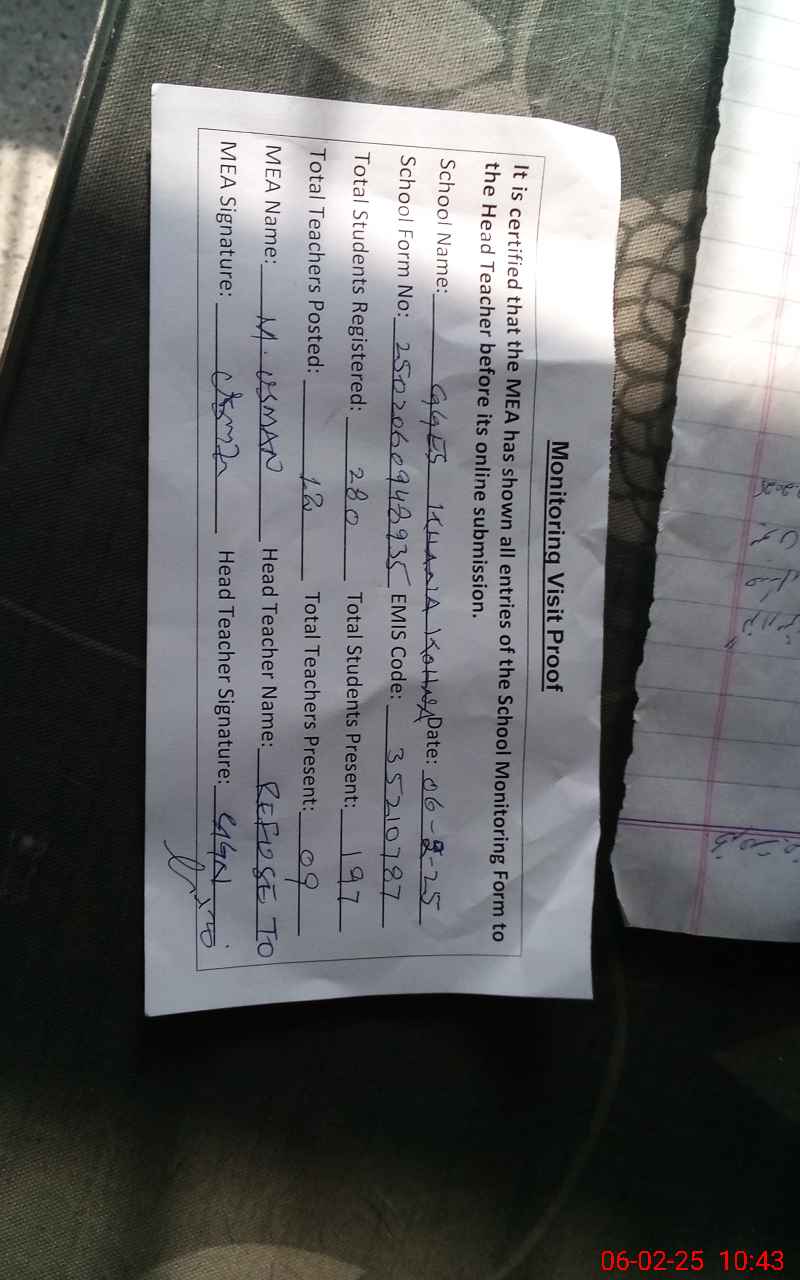 Monitoring Visit Proof
It is certified that the MEA has shown all entries of the School Monitoring Form to
the Head Teacher before its online submission.
School Name: GGES KHAKHA KOHNA Date: 06-2-25
School Form No: 2502060948935 EMIS Code: 35210787
Total Students Registered: 280 Total Students Present: 197
Total Teachers Posted: 12 Total Teachers Present: 09
MEA Name: M. USMAN Head Teacher Name: REFUSE TO
MEA Signature: Usman Head Teacher Signature: SIGN
06-02-25 10:43